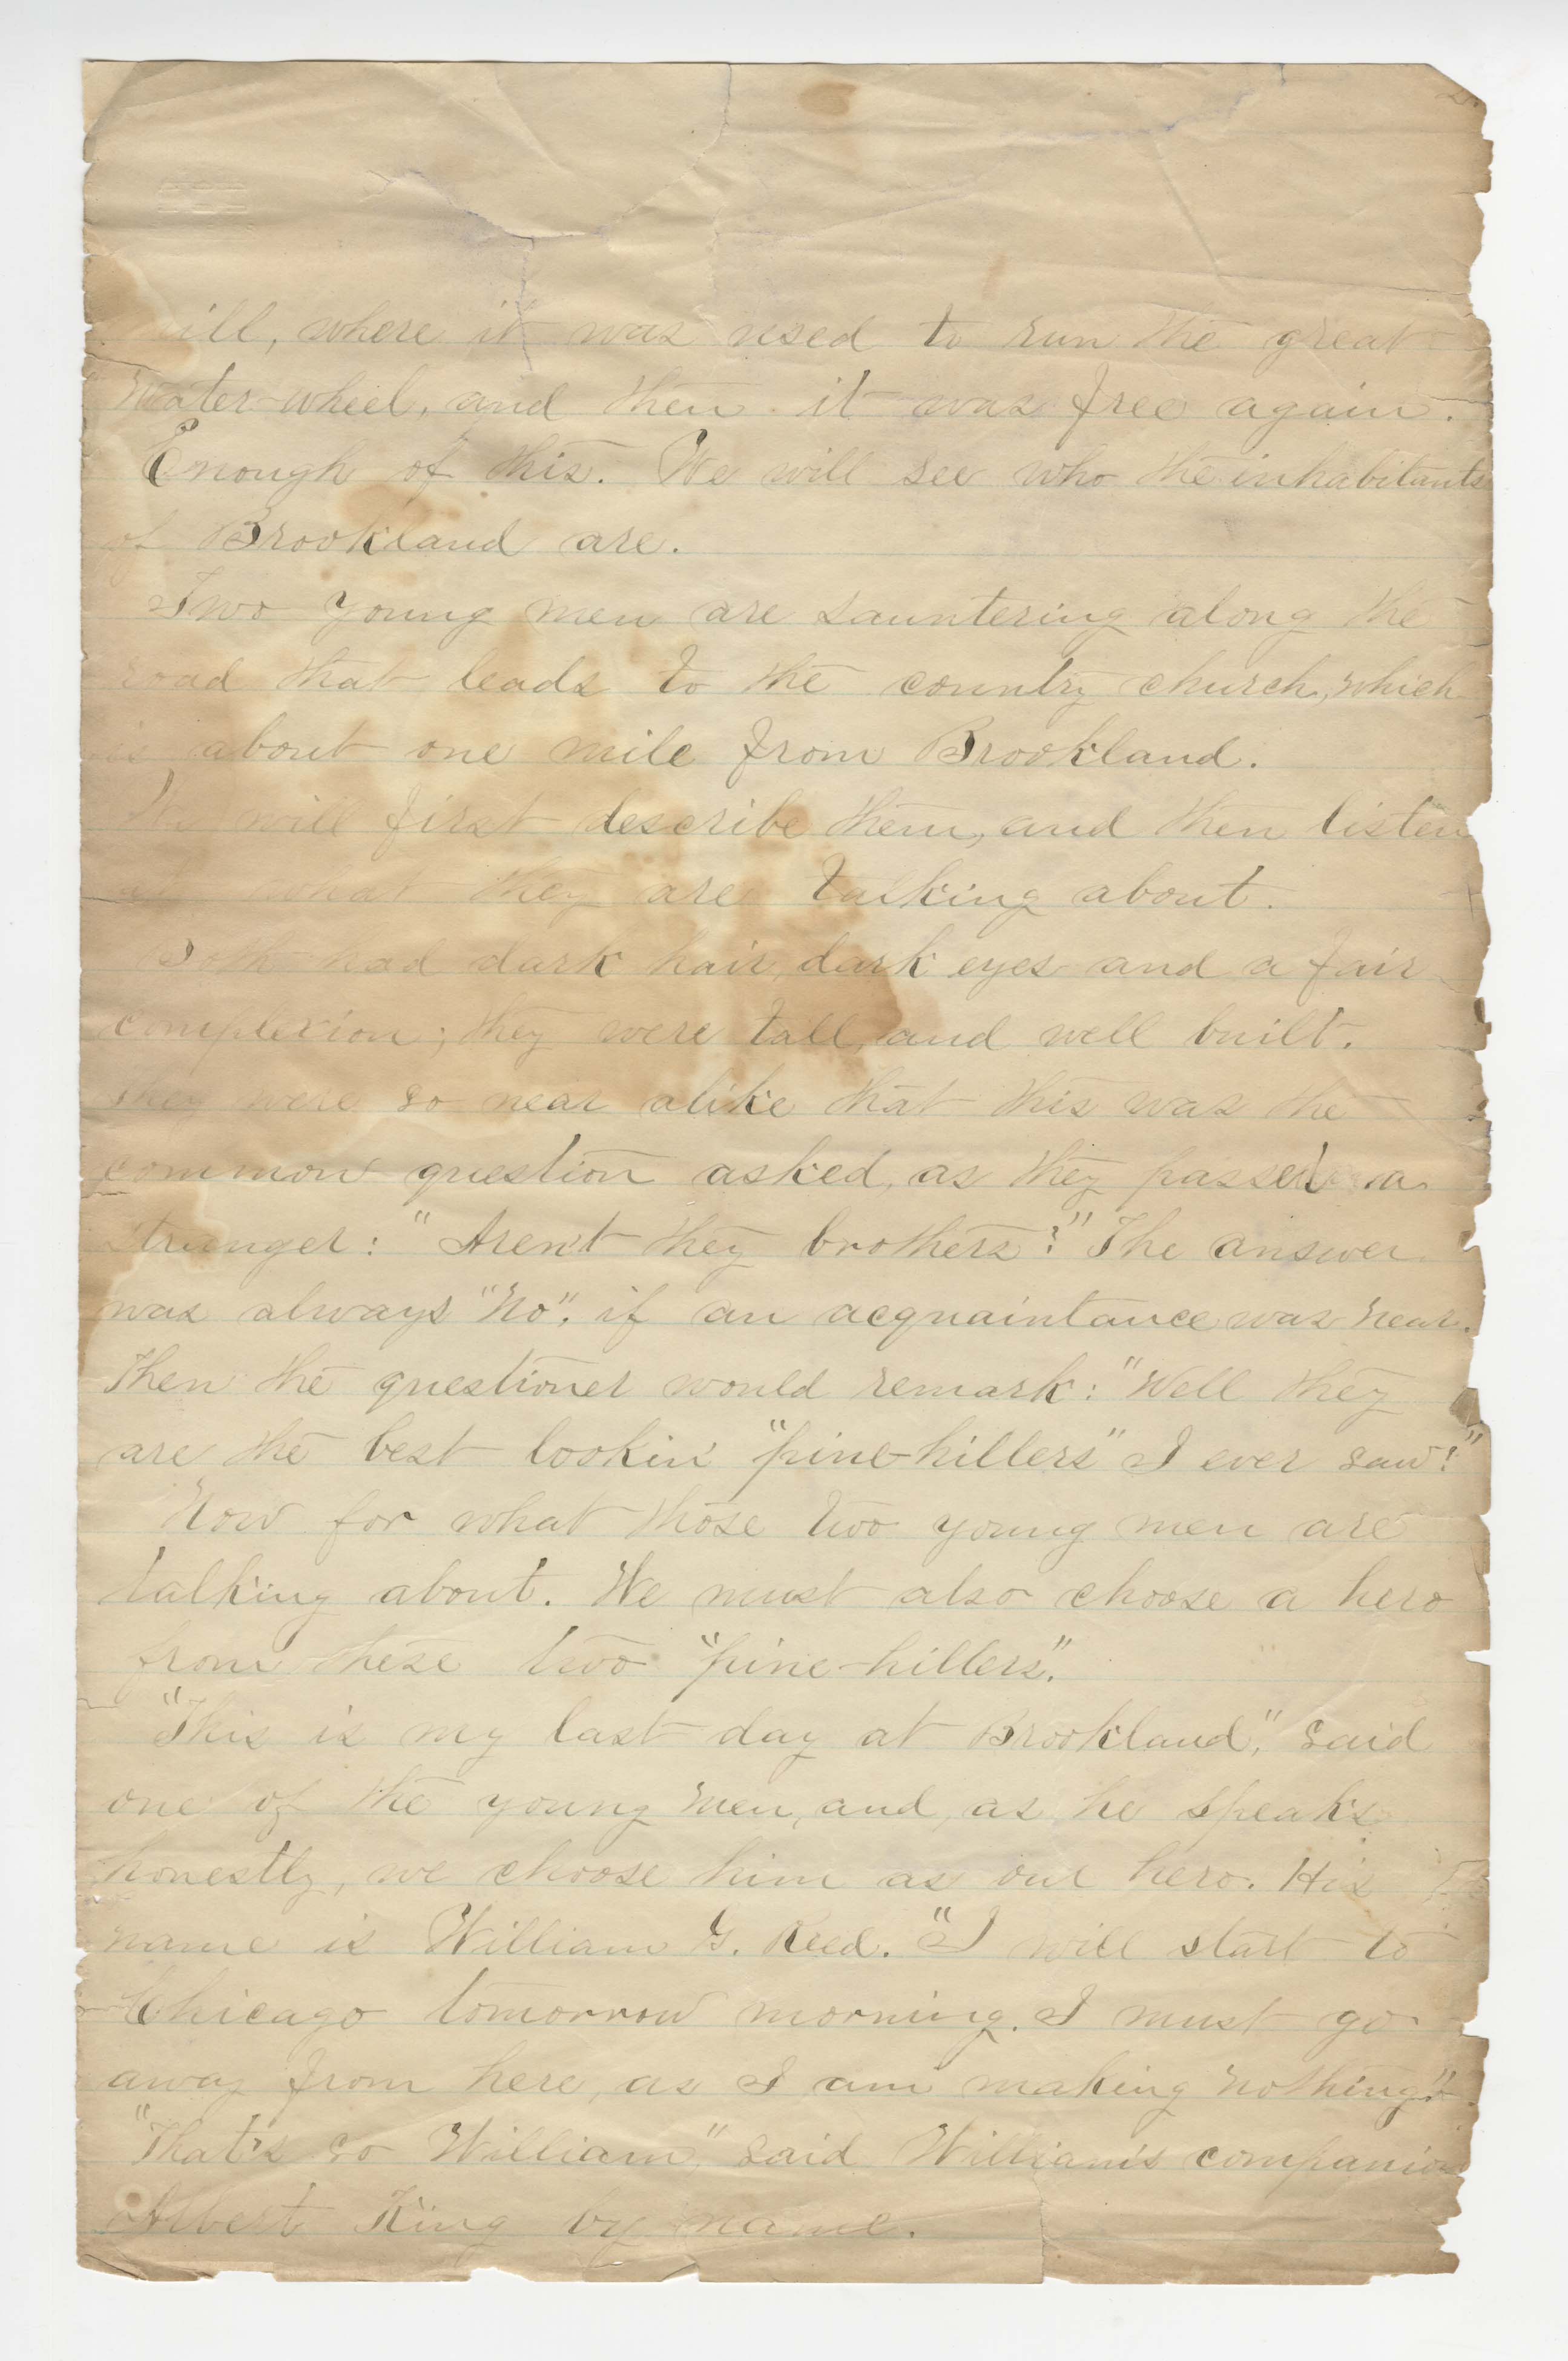 2.
ill, where it was used to run the great
water-wheel, and then it was free again.
Enough of this. We will see who the inhabitants
of Brookland are.
Two young men are sauntering along the
road that leads to the country church, which
is about one mile from Brookland.
We will first describe them, and then listen
what they are talking about.
Both had dark hair, dark eyes and a fair
complexion; they were tall, and well built.
They were so near alike that this was the
common question asked, as they passed a
stranger: "Aren't they brothers?" The answer
was always "No", if an acquaintance was near.
Then the questioner would remark: "Well they
are the best lookin' "pine-hillers" I ever saw!"
Now for what those two young men are
talking about. We must also choose a hero
from these two "pine-hillers".
"This is my last day at Brookland," said
one of the young men, and, as he speaks
honestly, we choose him as our hero. His
name is William G. Reed. "I will start to
Chicago tomorrow morning. I must go
away from here, as I am making nothing."
"That's so William," said William's companion
Albert King by name.